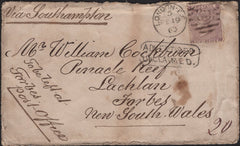 Via Southampton
Mr William Cockburn
Pinnacle Reef
Lachlan
Forbes
New South Wales
To be left at
Forbes
Post Office
LONDON
UNCLAIMED
20